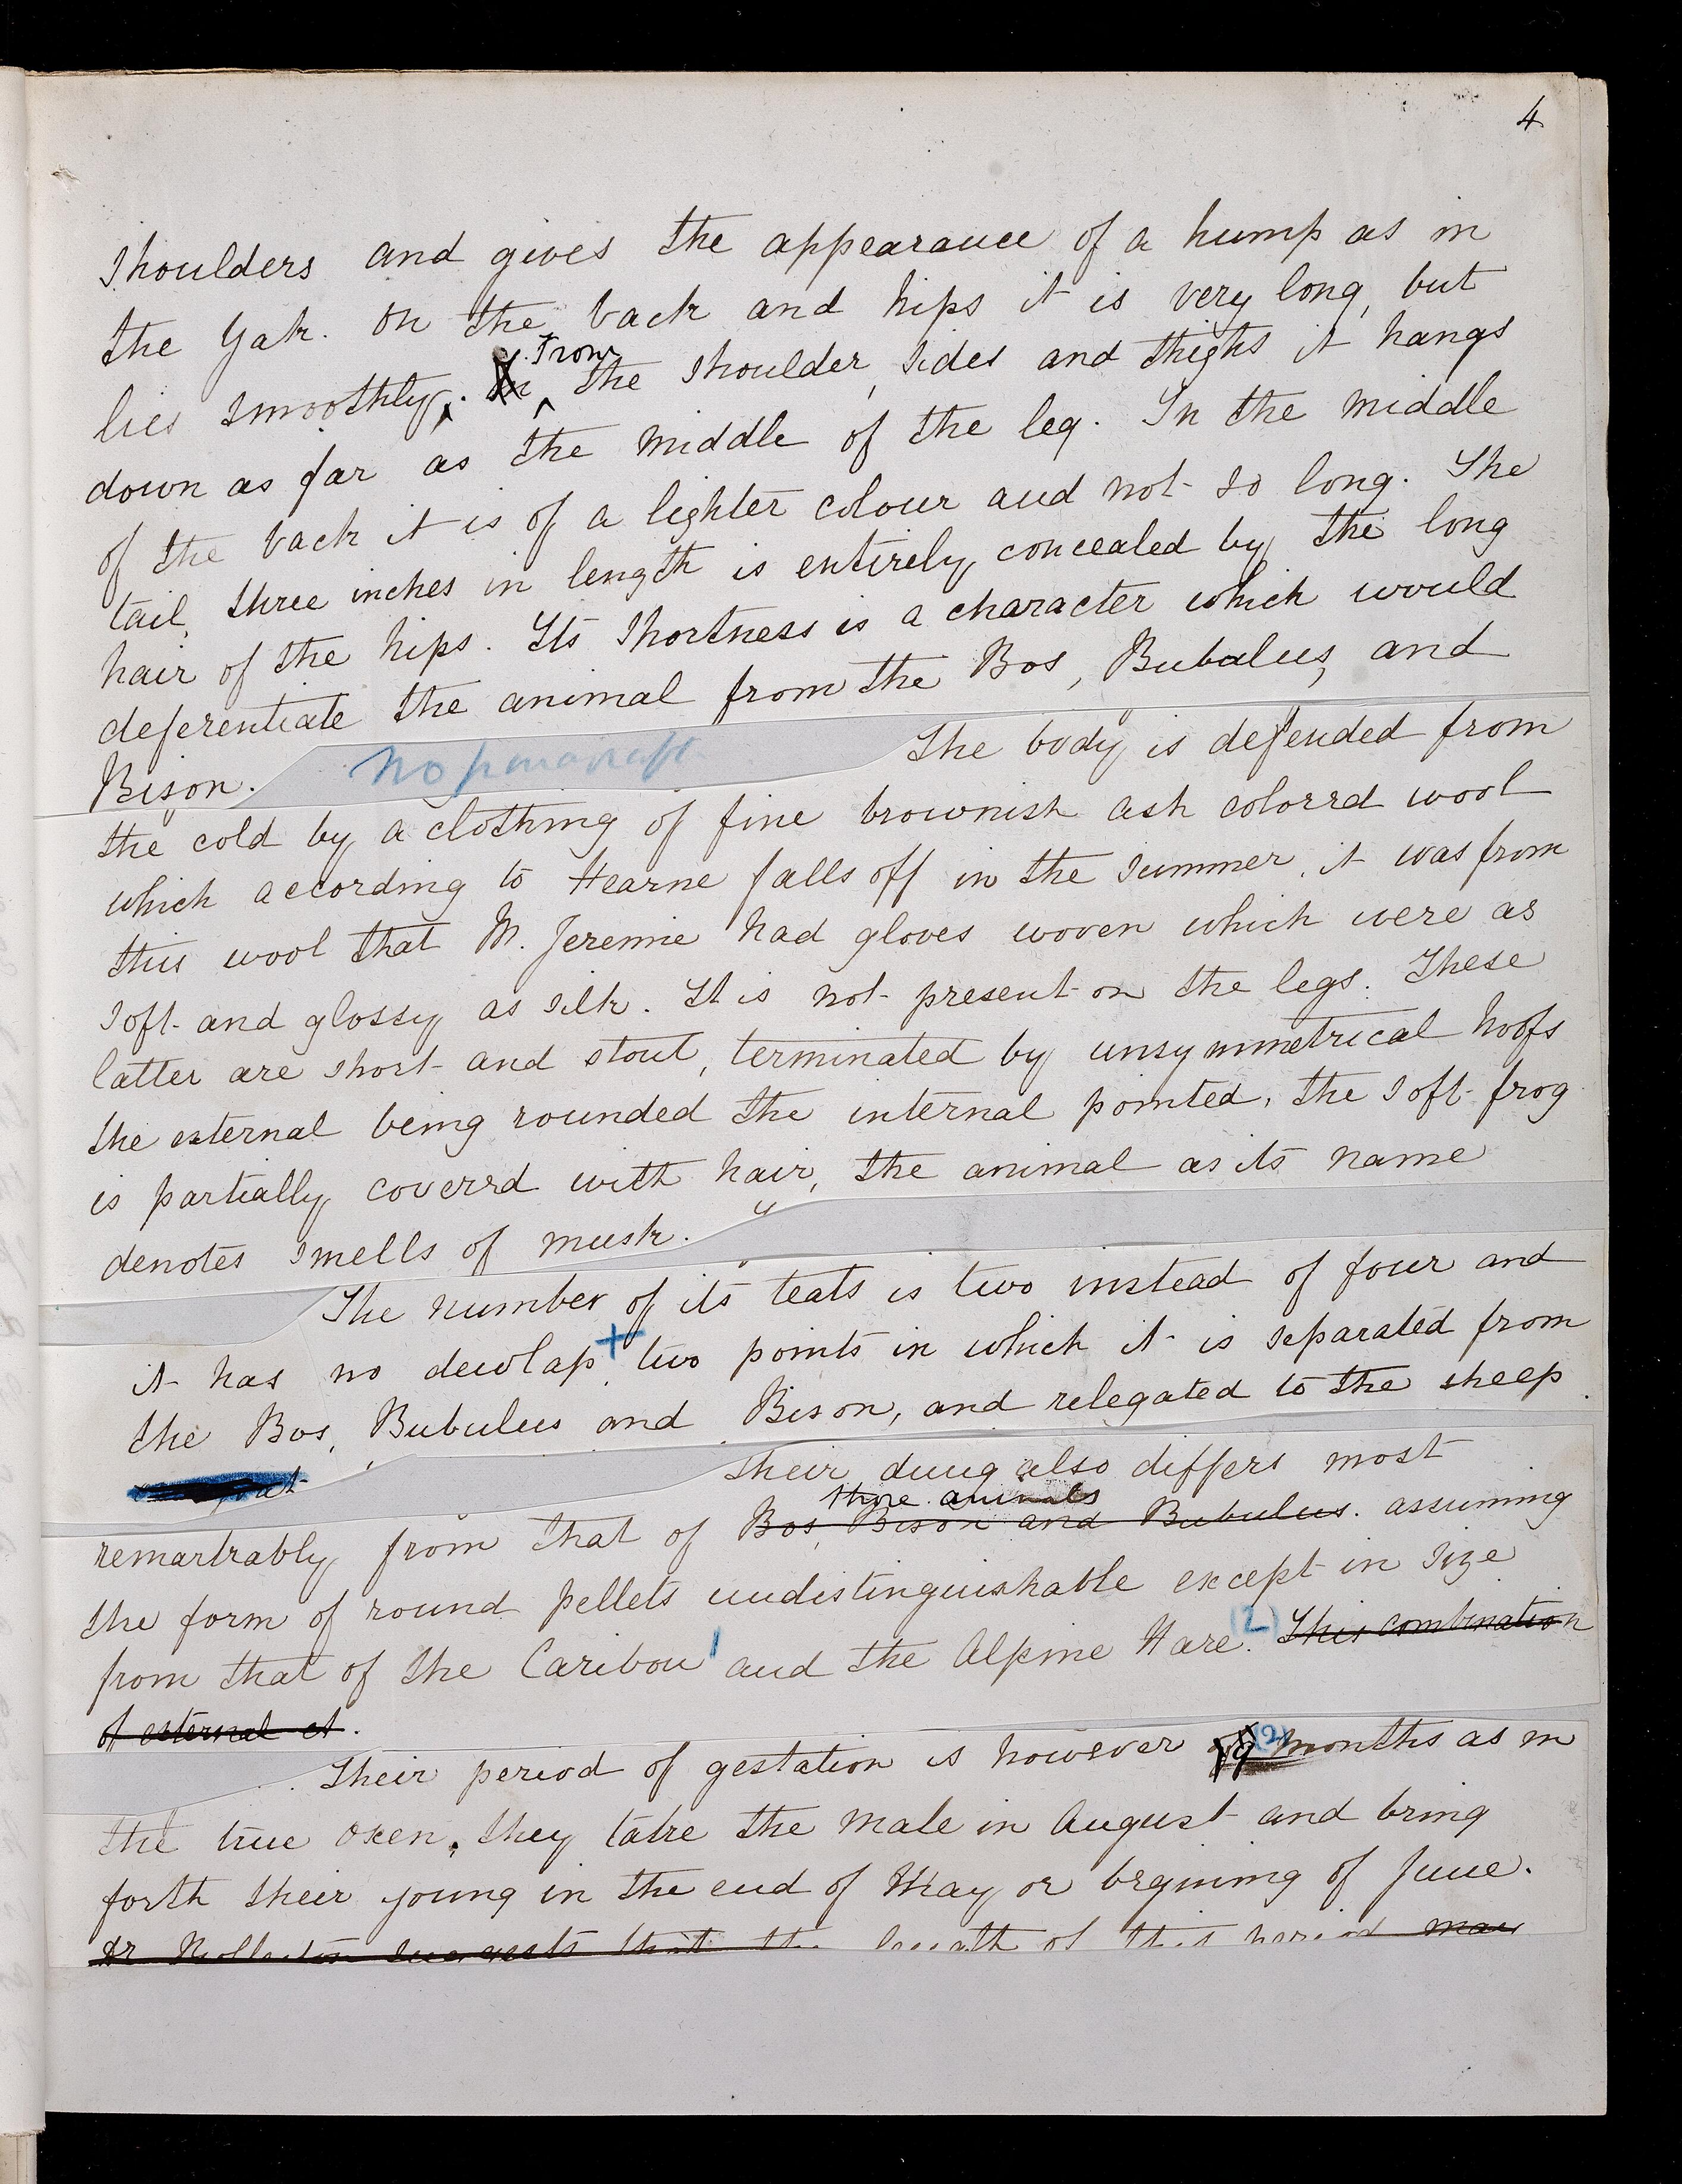 4
shoulders and gives the appearance of a hump as in
the Yak. On the back and hips it is very long, but
lies smoothly. From the shoulder, sides and thighs it hangs
down as far as the middle of the leg. In the middle
of the back it is of a lighter colour and not so long. The
tail, three inches in length is entirely concealed by the long
hair of the hips. Its shortness is a character which would
deferentiate the animal from the Bos, Bubalus, and
Bison. No paragraph The body is defended from
the cold by a clothing of fine brownish ash colored wool
which according to Hearne falls off in the summer, it was from
this wool that M. Jeremie had gloves woven which were as
soft and glossy as silk. It is not present on the legs. These
latter are short and stout, terminated by unsymmetrical hoofs
the external being rounded the internal pointed, the soft frog
is partially covered with hair, the animal as its name
denotes smells of musk.
The number of its teats is two instead of four and
it has no dewlap + two points in which it is separated from
the Bos, Bubulus and Bison, and relegated to the sheep.
Their dung also differs most
those animals
remarkably from that of Bos, Bison and Bubulus. assuming
the form of round pellets undistinguishable except in size
from that of the Caribou 1 and the Alpine Hare. (2) This combination
of external ct.
Their period of gestation is however 9 (2) months as in
the true oxen, they take the male in August and bring
forth their young in the end of May or begining of June.
Dr suggests that the length of this period may